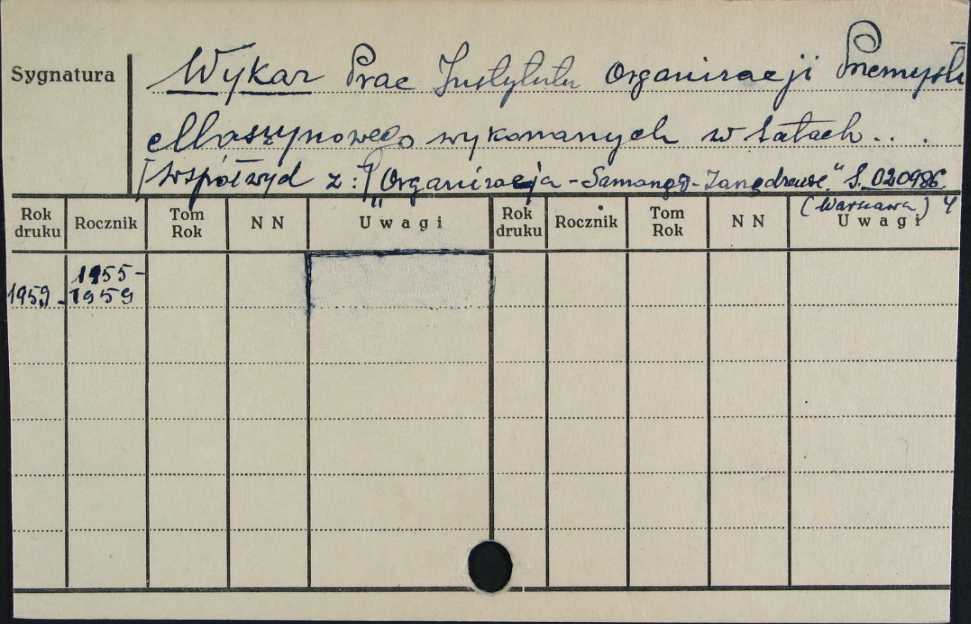 Sygnatura
Wykaz Prac Instytutu Organizacji Przemysłu
Maszynowego wykonanych w latach...
[współwyd z: "Organizacja - Samorząd - Zarządzanie" S. 020986
(Warszawa) 4
Rok druku Rocznik Tom Rok N N Uwagi Rok druku Rocznik Tom Rok N N Uwagi
1959 1955-1959